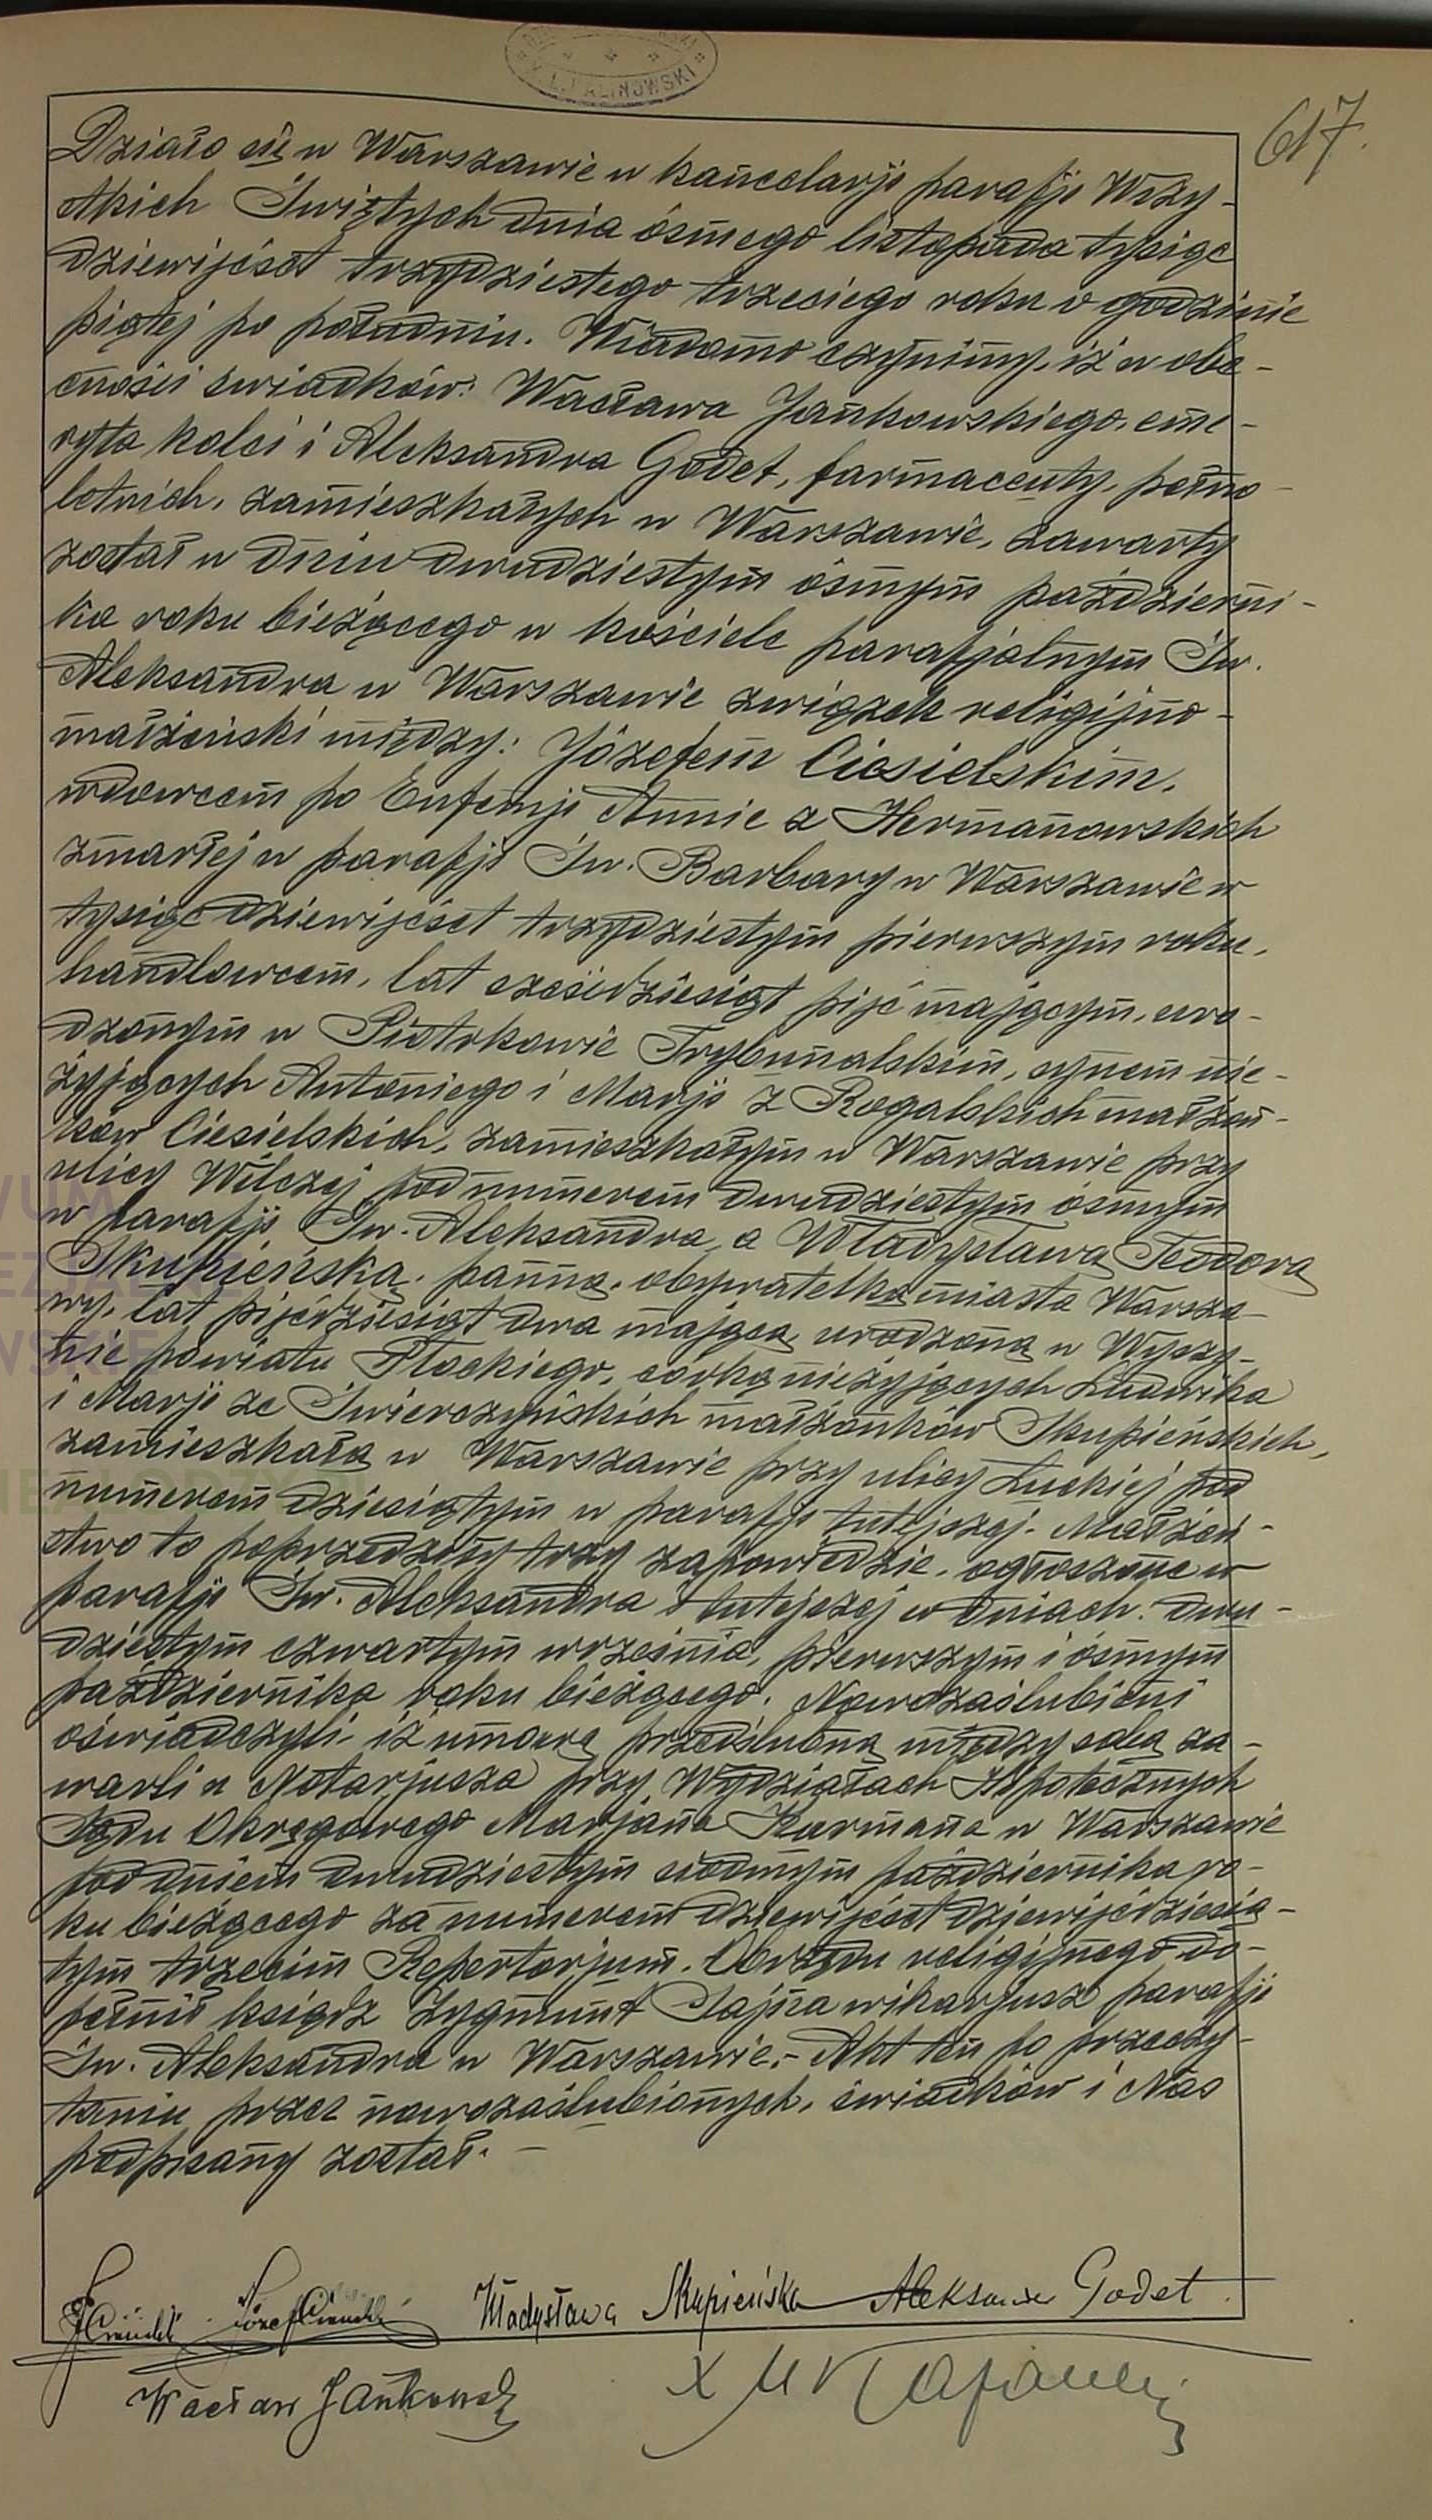 L. KALINOWSKI
617.
Działo się w Warszawie w kancelarji parafji Wszy-
stkich Świętych dnia ósmego listopada tysiąc
dziewijćset trzydziestego trzeciego roku o godzinie
piątej po południu. Wiadomo czynimy, iż w obe-
cności świadków: Wacława Jankowskiego, eme-
ryta kolei i Aleksandra Godet, farmaceuty, pełno-
letnich, zamieszkałych w Warszawie, zawarty
został w dniu dwudziestym ósmym październi-
ka roku bieżącego w kościele parafjalnym Św.
Aleksandra w Warszawie związek religijno-
małżeński między: Józefem Ciesielskim,
wdowcem po Eufemji Annie z Hermanowskich
zmarłej w parafji Św. Barbary w Warszawie w
tysiąc dziewijćset trzydziestym pierwszym roku,
handlowcem, lat sześćdziesiąt pijć mającym, uro-
dzonym w Piotrkowie Trybunalskim, synem nie-
żyjących Antoniego i Marji z Rogalskich małżon-
ków Ciesielskich, zamieszkałym w Warszawie przy
ulicy Wilczej pod numerem dwudziestym ósmym
w parafji Św. Aleksandra, a Władysławą Teodorą
Skupieńską, panną, obywatelką miasta Warsza-
wy, lat pijćdziesiąt dwa mającą, urodzoną w Wyszy-
nie powiatu Płockiego, córką nieżyjących Ludwika
i Marji ze Świerczyńskich małżonków Skupieńskich,
zamieszkałą w Warszawie przy ulicy Łuckiej pod
numerem dziesiątym w parafji tutejszej. Małżeń-
stwo to poprzedziły trzy zapowiedzie, ogłoszone w
parafji Św. Aleksandra i tutejszej w dniach: dwu-
dziestym czwartym września, pierwszym i ósmym
października roku bieżącego. Nowozaślubieni
oświadczyli, iż umowę przedślubną między sobą za-
warli u Notarjusza przy Wydziałach Hipotecznych
Sądu Okręgowego Marjana Kurmana w Warszawie
pod dniem dwudziestym siódmym października ro-
ku bieżącego za numerem dziewijćset dziewijćdziesią-
tym trzecim Repertorjum. Obrzędu religijnego do-
pełnił ksiądz Zygmunt Sajna wikarjusz parafji
Św. Aleksandra w Warszawie.- Akt ten po przeczy-
taniu przez nowozaślubionych, świadków i Nas
podpisany został. -
Władysława Skupieńska Aleksander Godet
Wacław Jankowski